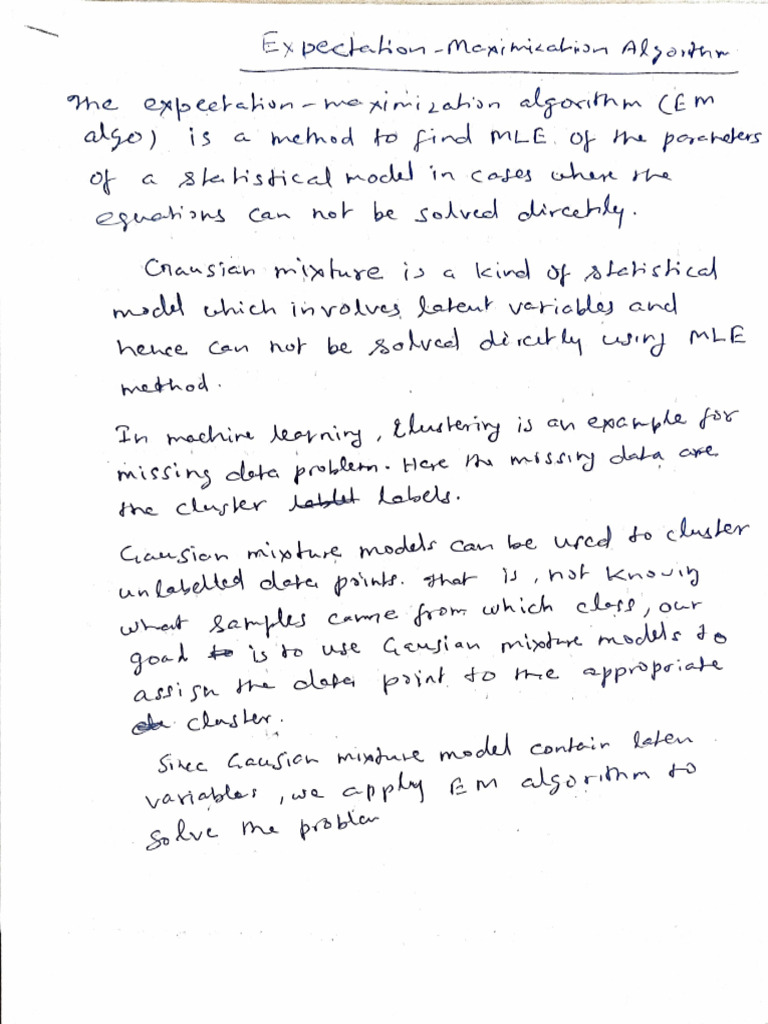 Expectation-Maximization Algorithm
The expectation-maximization algorithm (EM
algo) is a method to find MLE of the parameters
of a statistical model in cases where the
equations can not be solved dircetily.
Gausian mixture is a kind of statistical
model which involves latent variables and
hence can not be solved dircetly using MLE
method.
In machine learning, clustering is an example for
missing data problem. Here the missing data are
the cluster labels.
Gausian mixture models can be used to cluster
unlabelled data points. That is, not knowing
what samples came from which class, our
goal is to use Gausian mixture models to
assign the data point to the appropriate
cluster.
Since Gausian mixture model contain laten
variables, we apply EM algorithm to
solve the problem